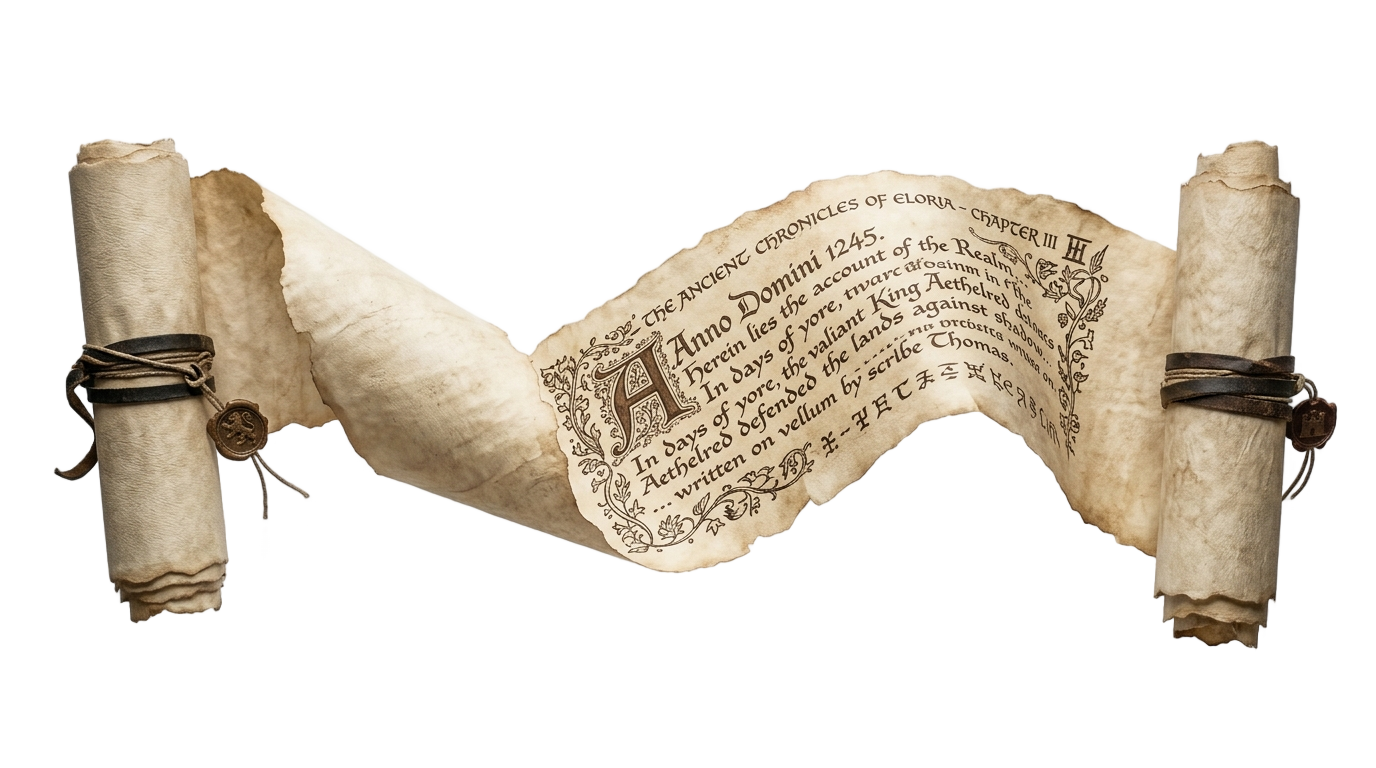 THE ANCIENT CHRONICLES OF ELORIA - CHAPTER III
A
Anno Domini 1245.
Herein lies the account of the Realm...
In days of yore,
In days of yore, the valiant King Aethelred
Aethelred defended the lands against shadow...
... written on vellum by scribe Thomas.